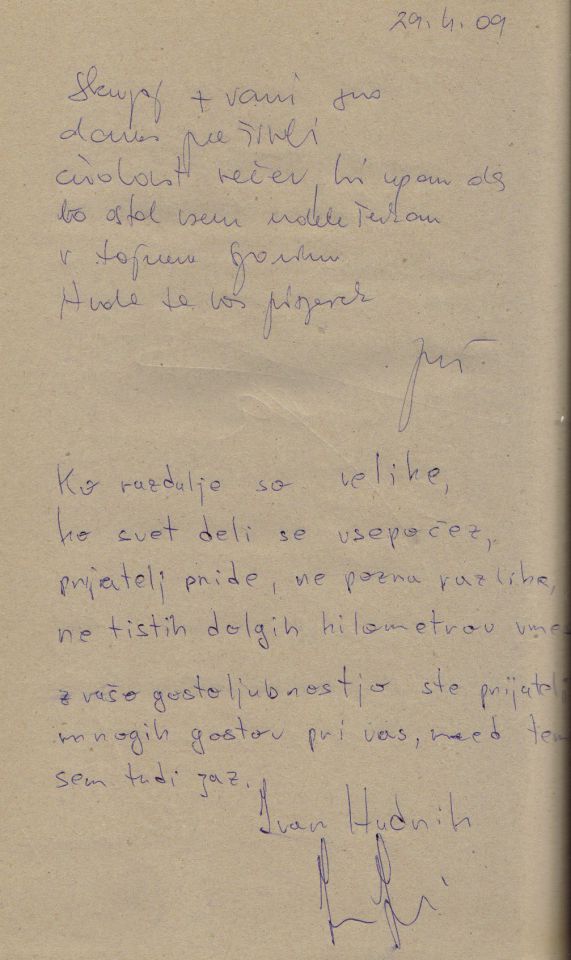 29.4.09
Skupaj z vami smo
danes preživeli
čudovit večer, ki upam da
bo ostal vsem udeležencem
v spominu
Hvala za vaš
Ko razdalje so velike,
ko svet deli se vsepočez,
prijatelj pride, ne pozna razlike,
ne tistih dolgih kilometrov vme
z vašo gostoljubnostjo ste prijatelj
mnogih gostov pri vas, med tem
sem tudi jaz.
Ivan Hudnik